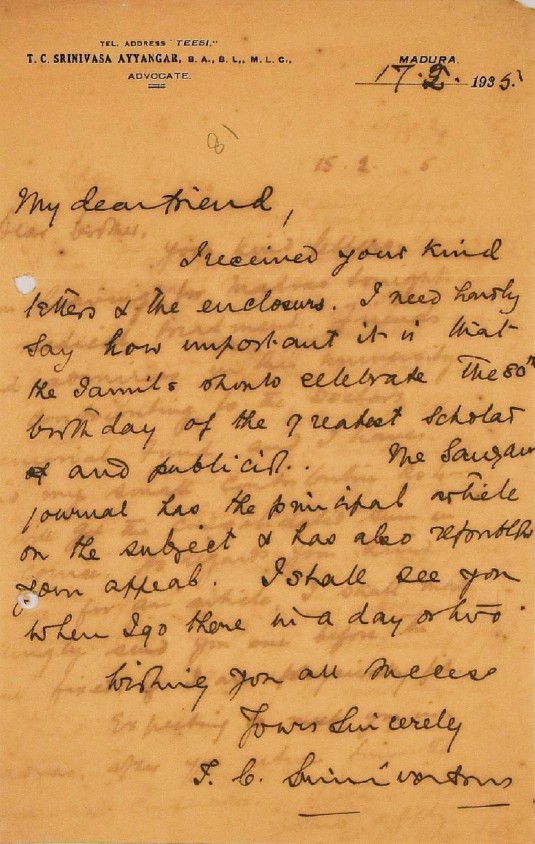 TEL. ADDRESS "TEESI."
T. C. SRINIVASA AYYANGAR, B. A., B. L., M. L. C.,
ADVOCATE.
MADURA,
17. 2. 1935.
8
15 2 5
My dear friend,
I received your kind
letters & the enclosures. I need hardly
say how important it is that
the Tamils should celebrate the 80th
birthday of the greatest scholar
and publicist.. The Sangam
journal has the principal article
on the subject & has also
your appeal. I shall see you
when I go there in a day or two.
Wishing you all success
Yours Sincerely
T. C.